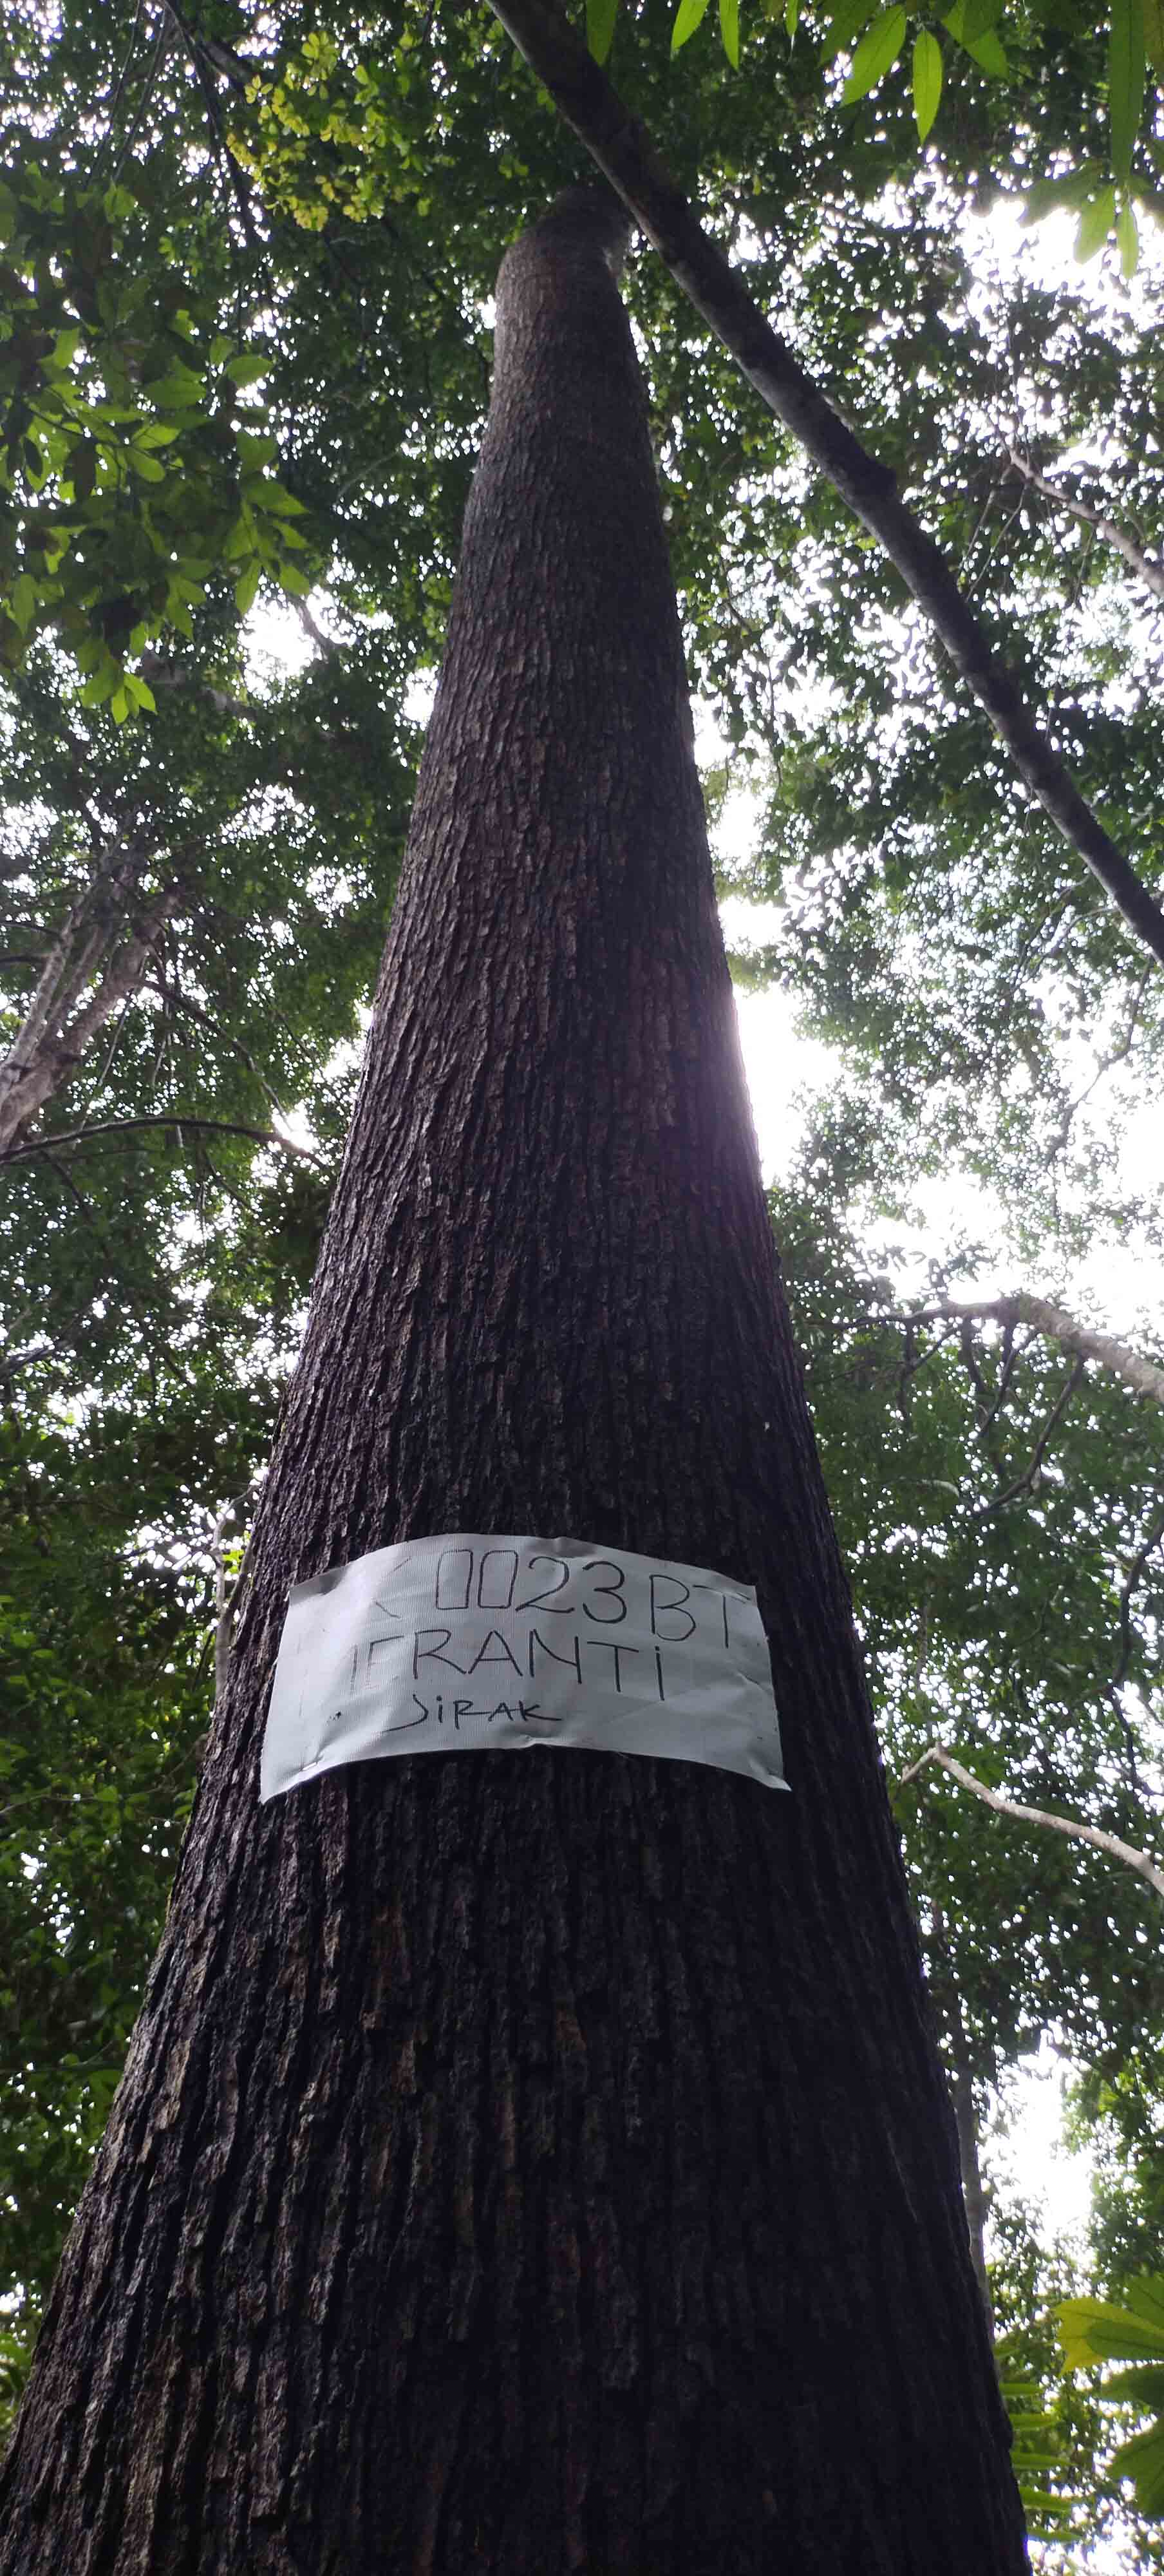 K 0023 BT
MERANTI
SIRAK